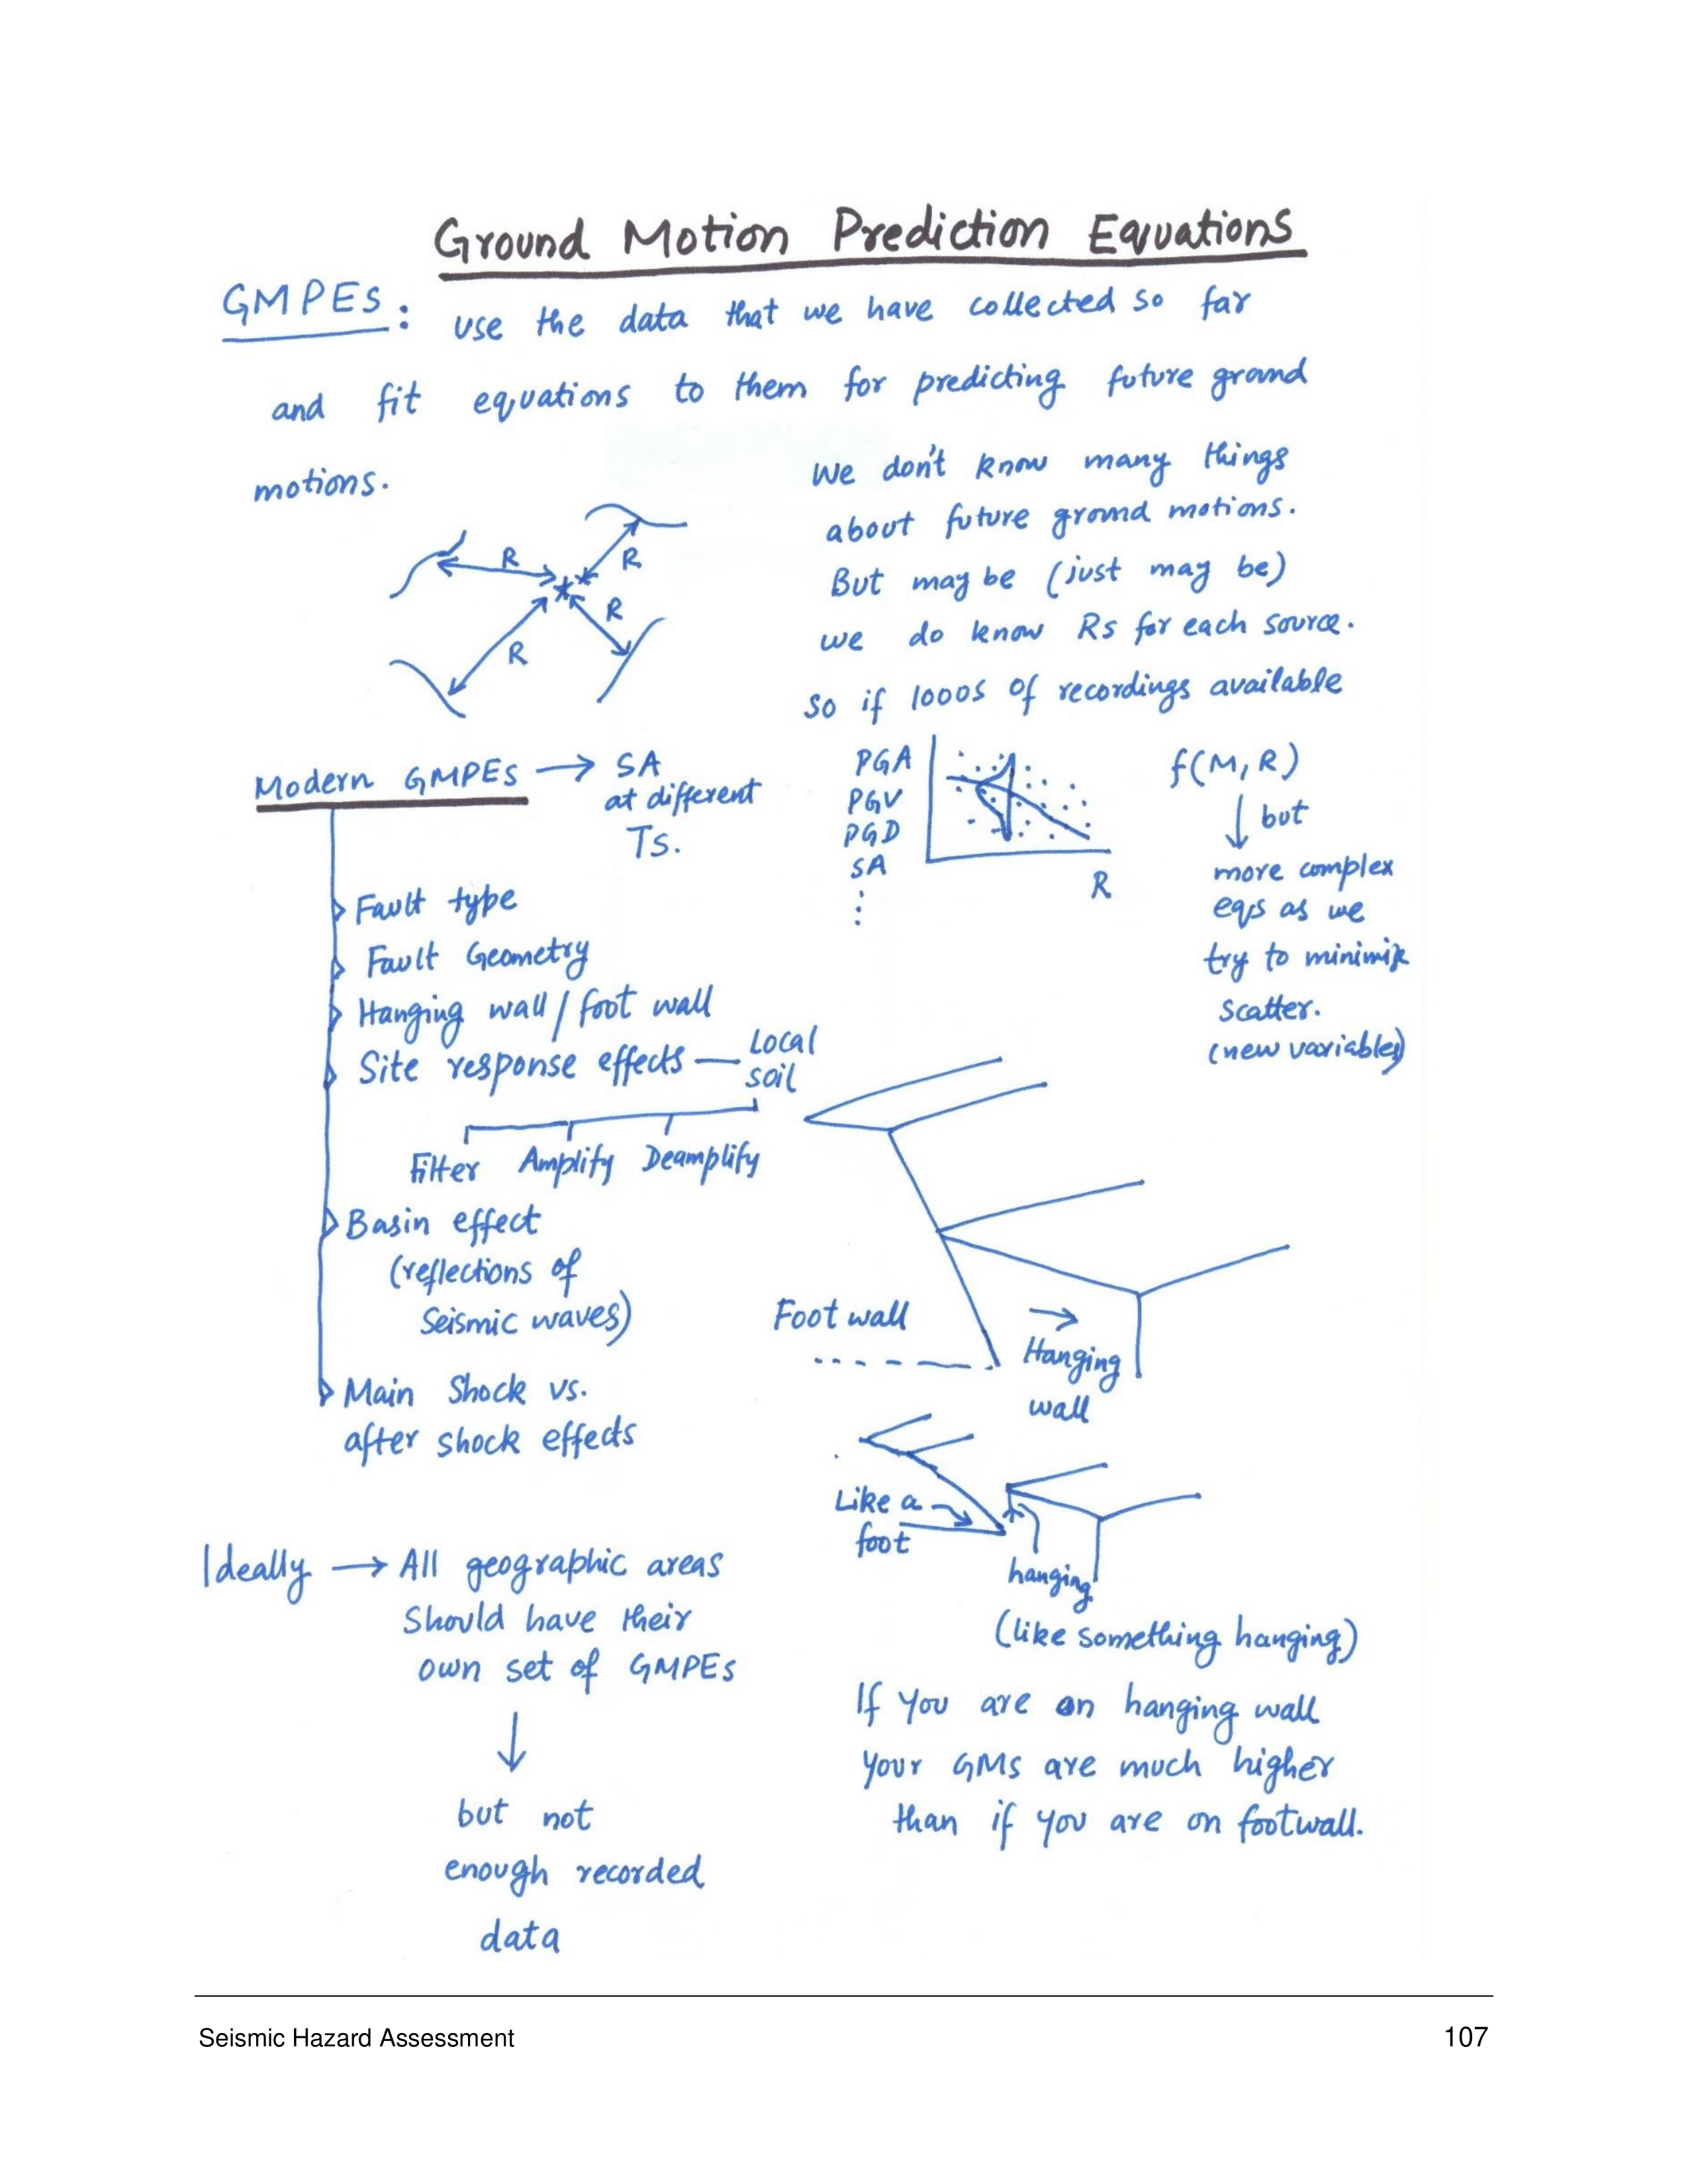 Ground Motion Prediction Equations
GMPEs: use the data that we have collected so far
and fit equations to them for predicting future ground
motions.
We don't know many things
about future ground motions.
But may be (just may be)
we do know Rs for each source.
So if 1000s of recordings available
R
R
R
R
Modern GMPEs → SA
at different
Ts.
PGA
PGV
PGD
SA
⋮
R
f(M, R)
↓ but
more complex
eqs as we
try to minimize
scatter.
(new variables)
Fault type
Fault Geometry
Hanging wall / foot wall
Site response effects — Local
soil
Filter Amplify Deamplify
Basin effect
(reflections of
seismic waves)
Main Shock vs.
after shock effects
Foot wall
→
Hanging
wall
Like a
foot
hanging
(like something hanging)
If you are on hanging wall
your GMs are much higher
than if you are on footwall.
Ideally → All geographic areas
Should have their
own set of GMPEs
↓
but not
enough recorded
data
Seismic Hazard Assessment 107